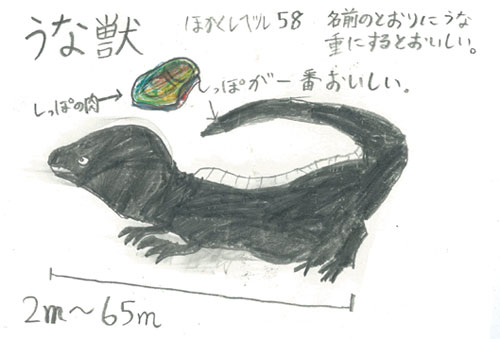 うな獣
ほかくレベル 58
名前のとおりにうな
重にするとおいしい。
しっぽの肉→
しっぽが一番おいしい。
2m〜65m